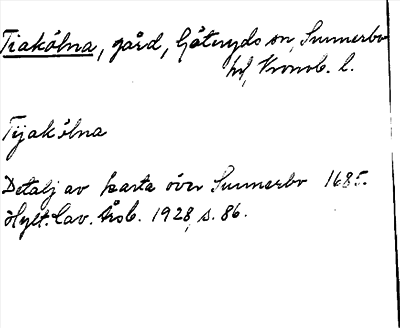 Tiakölna, gård, Göteryds sn, Sunnerbo
hd, Kronob. l.
Tijakölna
Detalj av karta över Sunnerbo 1685.
Hylt. Cav. Årsb. 1928, s. 86.